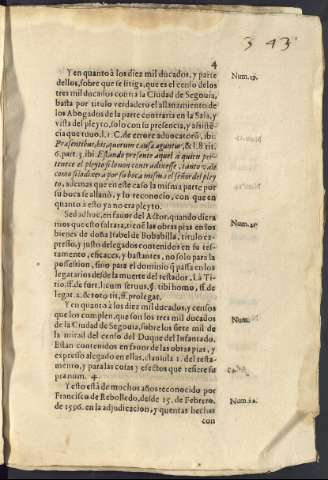 343
4
Y en quanto à los diez mil ducados, y parte
dellos, sobre que se litiga, que es el censo de los
tres mil ducados contra la Ciudad de Segouia,
basta por titulo verdadero el allanamiento de
los Abogados de la parte contraria en la Sala, y
vista del pleyto, solo con su presencia, y
cia que tuuo, l. 1. C. de errore aduocator. ibi:
Præsentibus, his, quorum causa agitur, & l. 8. tit.
6. part. 3. ibi: Estando presente aquel à quien pertenece
el pleyto si lo non contradixesse, tanto vale
como si lo dixera por su boca misma el señor del pleyto,
ademas que en este caso la misma parte por
su boca se allanò, y lo reconocio, con que en
quanto à esto ya no era pleyto.
Sed adhuc, en fauor del Actor, quando diera
mos que esto faltara, tienē las obras pias en los
bienes de doña Isabel de Bobadilla, titulo expresso,
y justo delegados contenidos en su testamento,
eficaces, y bastantes, no solo para la
possession, sino para el dominio q̃ passa en los
legatarios desde la muerte del testador, l. à Titio,
ff. de furt. l. cum seruus, §. tibi homo, ff. de
legat. 2. & toto tit. ff. pro legat.
Y en quanto à los diez mil ducados, y censos
que los complen, que son los tres mil ducados
de la Ciudad de Segouia, sobre los siete mil de
la mitad del censo del Duque del Infantado.
Estan contenidos en fauor de las obras pias, y
expresso alegado en ellas, clausula 1. del testamento,
y para las cosas y efectos que refiere su
pra num. 4.
Y esto està de muchos años reconocido por
Francisco de Rebolledo, desde 15. de Febrero.
de 1596. en la adjudicacion, y quentas hechas
con
Num. 19.
Num. 20.
Num.
Num. 22.